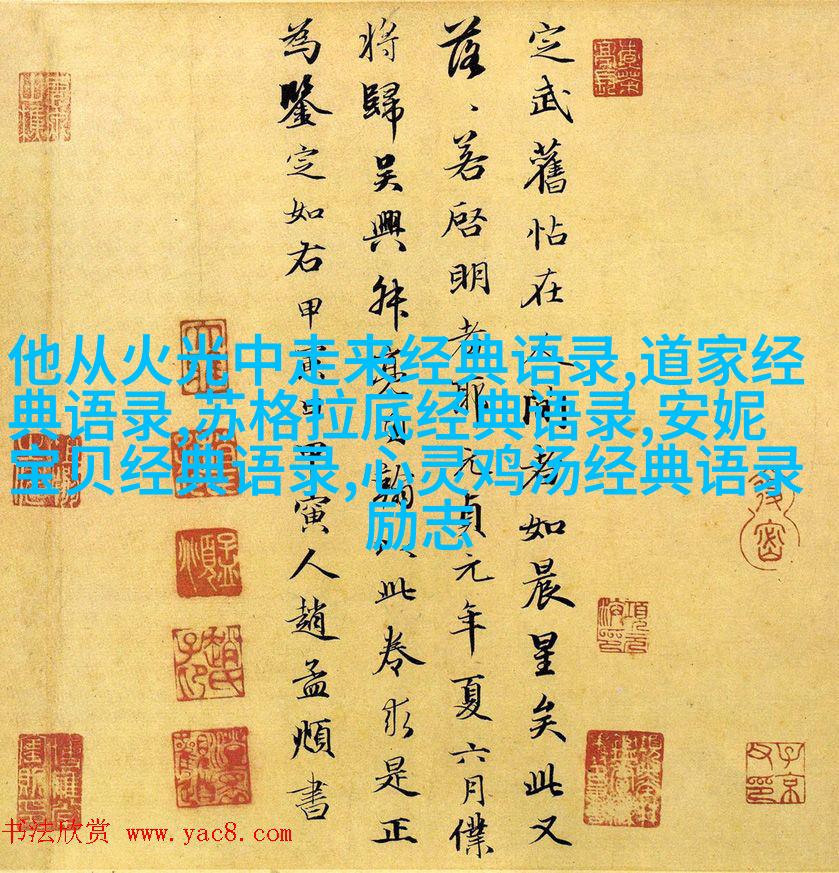 定武舊帖在人間者如晨星矣此又
落、若啓明者耶元貞元年夏六月僕
将歸吳興叔亮内翰以此卷求是正
為鑒定如右甲寅日甲寅人趙孟頫書
他从火光中走来经典语录,道家经
典语录,苏格拉底经典语录,安妮
宝贝经典语录,心灵鸡汤经典语录
励志
子京父印
书法欣赏 www.yac8.com